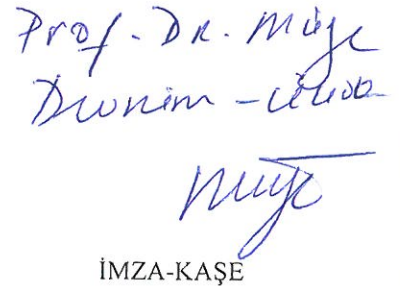 Prof. Dr. Müge
Müge
İMZA-KAŞE